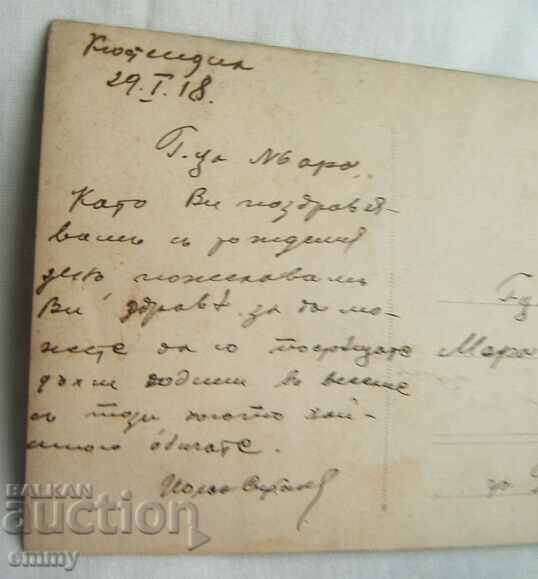 Кюстендил
29.I.18.
Г-ца Мара,
Като Ви поздравя-
вамъ съ рождения
день пожелавамъ
Ви здраве за да мо-
жете да го посрещате
дълги години въ веселие
съ този когото най-
много обичате.
Г-ца
Мара
за
BALKAN
auction
emmy